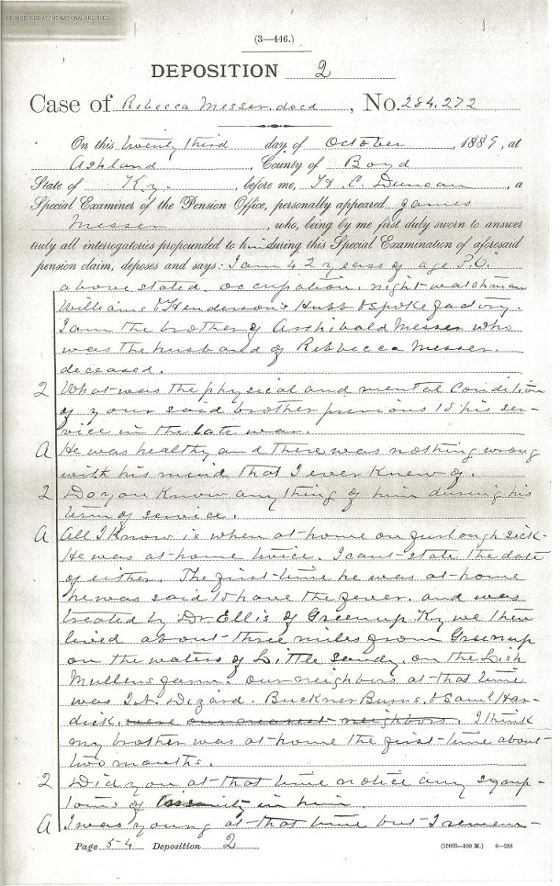 REPRODUCED AT THE NATIONAL ARCHIVES
(3—446.)
DEPOSITION 2
Case of Rebecca Messer, decd, No. 284.272
On this twenty third day of October, 1889, at
Ashland, County of Boyd
State of Ky., before me, C. Duncan, a
Special Examiner of the Pension Office, personally appeared James
Messer, who, being by me first duly sworn to answer
truly all interrogatories propounded to him during this Special Examination of aforesaid
pension claim, deposes and says: I am 42 years of age P.O.
above stated. occupation, night watchman
Williams & Henderson's Hubb & spoke factory.
I am the brother of Archibald Messer who
was the husband of Rebbecca Messer.
deceased.
Q What was the physical and mental Condition
of your said brother previous to his ser-
vice in the late war.
A He was healthy and there was nothing wrong
with his mind that I ever knew of.
Q Do you Know anything of him during his
term of service.
A All I Know is when at home on furlough sick.
He was at home twice. I cant state the date
of either. The first time he was at home
he was said to have the fever. and was
treated by Dr Ellis of Greenup Ky we then
lived about three miles from Greenup
on the waters of Little Sandy, on the
Mullens farm. our neighbors at that time
was Dizard. Buckner Burns & Saml Har-
dick. were our nearest neighbors. I think
my brother was at home the first time about
two months.
Q Did you at that time notice any symp-
toms of insanity in him
A I was young at that time but I remem-
Page 54 Deposition 2 6—288